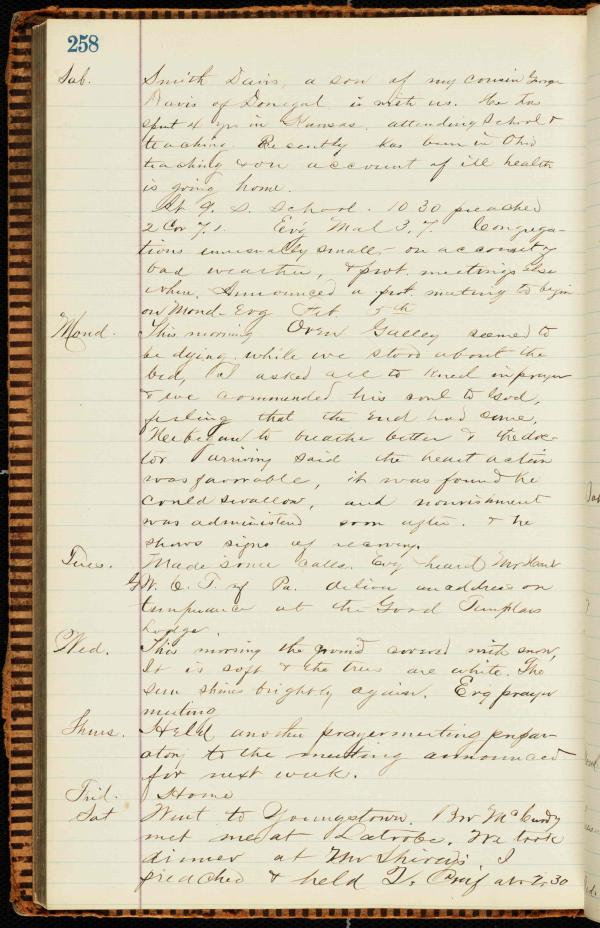 258
Sab. Smith Davis, a son of my cousin George
Davis of Donegal is with us. He has
spent 4 yrs in Kansas, attending School &
teaching Recently has been in Ohio
teaching & on account of ill health
is going home.
At 9. S. School. 10 30 preached
2 Cor 7.1. Evg Mal 3.7. Congrega-
tions unusually small, on account of
bad weather, & prot. meetings else
where. Announced a prot. meeting to begin
on Mond. Evg Feb. 5th
Mond. This morning Oven Galley seemed to
be dying. while we stood about the
bed, I asked all to kneel in prayer
& we commended his soul to God,
feeling that the End had come.
He began to breathe better & the doc-
tor arriving said the heart action
was favorable, it was found he
could swallow, and nourishment
was administered soon after. & he
shows signs of recovery.
Tues. Made some calls. Evg heard Mr
G. W. C. T. of Pa. deliver an address on
temperance at the Good Templars
Lodge.
Wed. This morning the ground covered with snow,
It is soft & the trees are white. The
sun shines brightly again. Evg prayer
meeting
Thurs. Held another prayer meeting prepar-
atory to the meeting announced
for next week.
Frid. Home
Sat Went to Youngstown. Bro McCurdy
met me at Latrobe. We took
dinner at Mr I
preached & held Q. Conf at 2,30